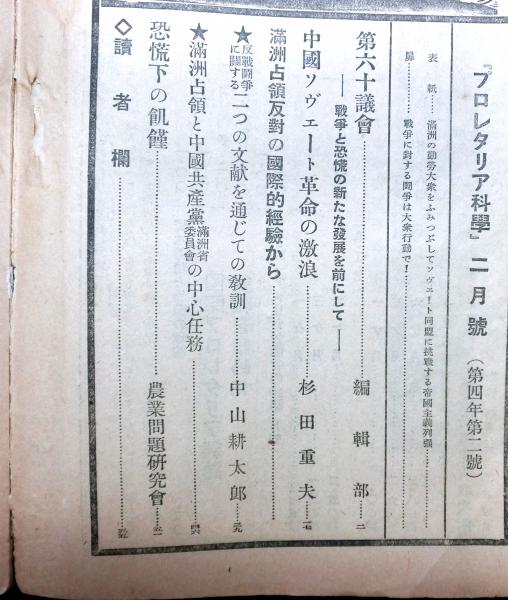 『プロレタリア科學』二月號（第四年第二號）
表紙……滿洲の勤勞大衆をふみつぶしてソヴェート同盟に挑戰する帝國主義列强
扉……戰爭に對する鬪爭は大衆行動で！
第六十議會……編輯部…二
――戰爭と恐慌の新たな發展を前にして――
中國ソヴェート革命の激浪……杉田重夫…一七
滿洲占領反對の國際的經驗から
★反戰鬪爭に關する二つの文献を通じての敎訓……中山耕太郎…三九
★滿洲占領と中國共產黨滿洲省委員會の中心任務……四六
恐慌下の飢饉……農業問題硏究會…五一
◇讀者欄……五五